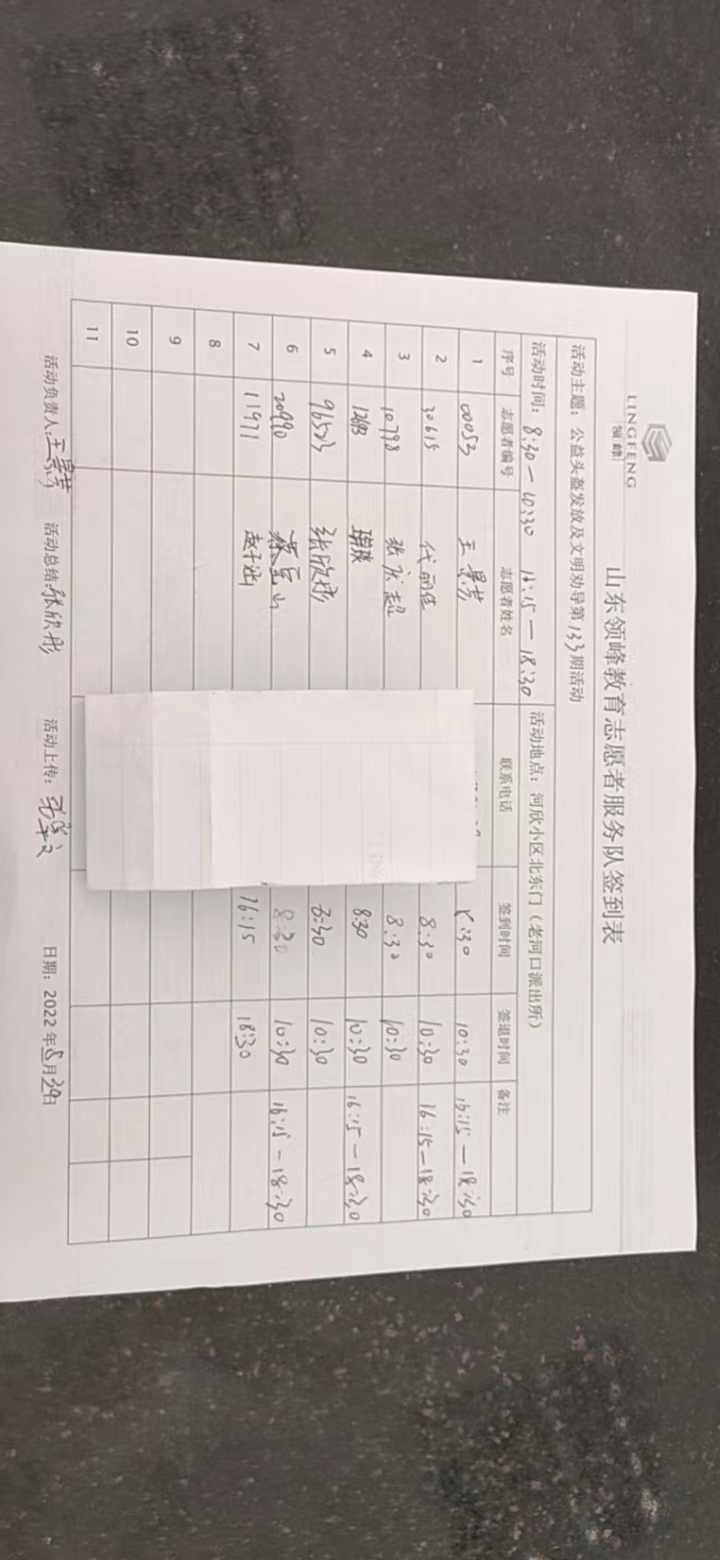 LINGFENG
领峰
山东领峰教育志愿者服务队签到表
活动主题：公益头盔发放及文明劝导第133期活动
活动时间：8:30—10:30 16:15—18:30 活动地点：河欣小区北东门（老河口派出所）
序号 志愿者编号 志愿者姓名 联系电话 签到时间 签退时间 备注
1 00053 王景芳 8:30 10:30 16:15—18:30
2 30615 代丽佳 8:30 10:30 16:15—18:30
3 10798 张庆超 8:30 10:30
4 8:30 10:30 16:15—18:30
5 96523 张欣彤 8:30 10:30
6 20990 8:30 10:30 16:15—18:30
7 11971 16:15 18:30
8
9
10
11
活动负责人：王景芳 活动总结：张欣彤 活动上传： 日期：2022年8月30日